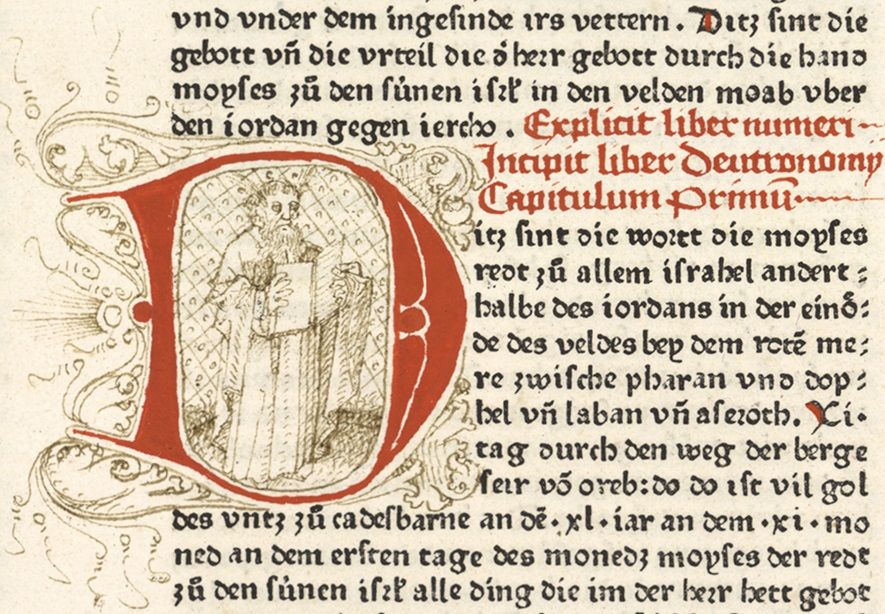 vnd vnder dem ingesinde irs vettern. Ditz sint die
gebott vn̄ die vrteil die d̄ herr gebott durch die hand
moyses zů den súnen isrł in den velden moab vber
den iordan gegen iercho. Explicit liber numeri
Incipit liber Deutronomy
Capitulum Primū
Ditz sint die wortt die moyses
redt zů allem israhel andert:
halbe des iordans in der einȱ:
de des veldes bey dem rotē me:
re zwische pharan vnd dop:
hel vn̄ laban vn̄ aseroth. Xi.
tag durch den weg der berge
seir vō oreb: do do ist vil gol
des vntz zů cadesbarne an dē .xl. iar an dem .xi. mo
ned an dem ersten tage des monedz moyses der redt
zů den súnen isrł alle ding die im der herr hett gebot